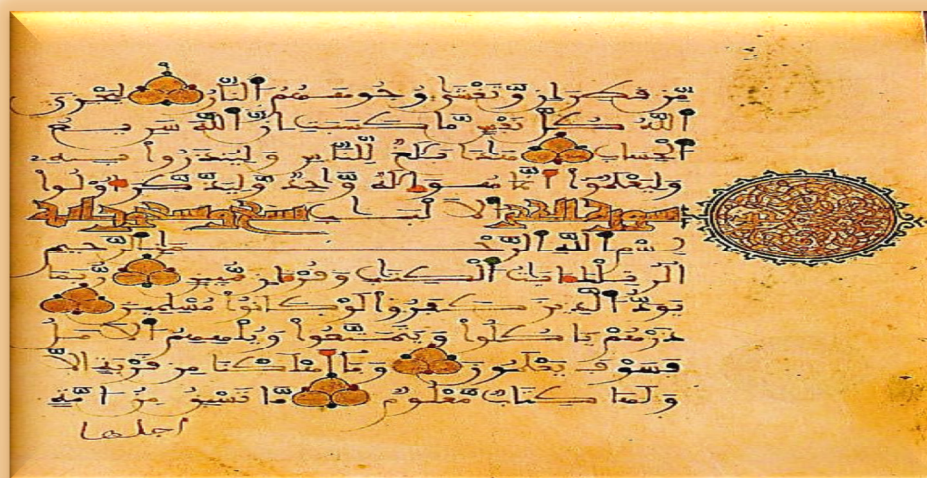 مِّن قَطِرَانٍ وَّتَغْشَىٰ وُجُوهَهُمُ اَ۬لنَّارُ لِيَجْزِيَ
اَ۬للَّهُ كُلَّ نَفْسٍ مَّا كَسَبَتِ اِنَّ اَ۬للَّهَ سَرِيعُ
اُ۬لْحِسَابِ هَٰذَا بَلَٰغٌ لِّلنَّاسِ وَلِيُنذَرُواْ بِهِۦ
وَلِيَعْلَمُوٓاْ أَنَّمَا هُوَ إِلَٰهٌ وَّٰحِدٌ وَّلِيَذَّكَّرَ أُوْلُواْ
سورة الحجر اُ۬لَالْبَٰبِ تسع وتسعون اية
بِسْمِ اِ۬للَّهِ اِ۬لرَّحْمَٰنِ اِ۬لرَّحِيمِ
أَلَٓرۖ تِلْكَ ءَايَٰتُ اُ۬لْكِتَٰبِ وَقُرْءَانٍ مُّبِينٍ رُّبَمَا
يَوَدُّ اُ۬لذِينَ كَفَرُواْ لَوْ كَانُواْ مُسْلِمِينَ
ذَرْهُمْ يَاكُلُواْ وَيَتَمَتَّعُواْ وَيُلْهِهِمُ اُ۬لَامَلُ
فَسَوْفَ يَعْلَمُونَ وَمَآ أَهْلَكْنَا مِن قَرْيَةٍ اِلَّا
وَلَهَا كِتَابٌ مَّعْلُومٌ مَّا تَسْبِقُ مِنُ ا۟مَّةٍ
اجلها